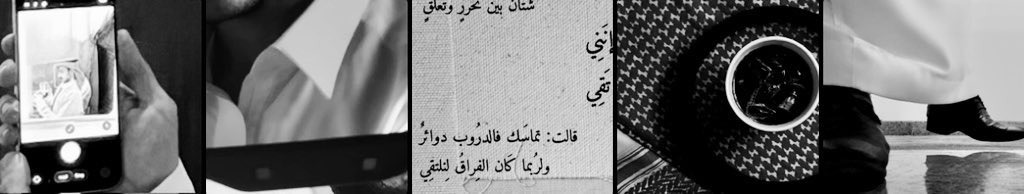 شتان بين تحررٍ وتعلقٍ
إنّني
تَقِي
قالت: تماسَك فالدّروب دوائرٌ
ولرُبما كان الفِراقُ لِنلتقِي